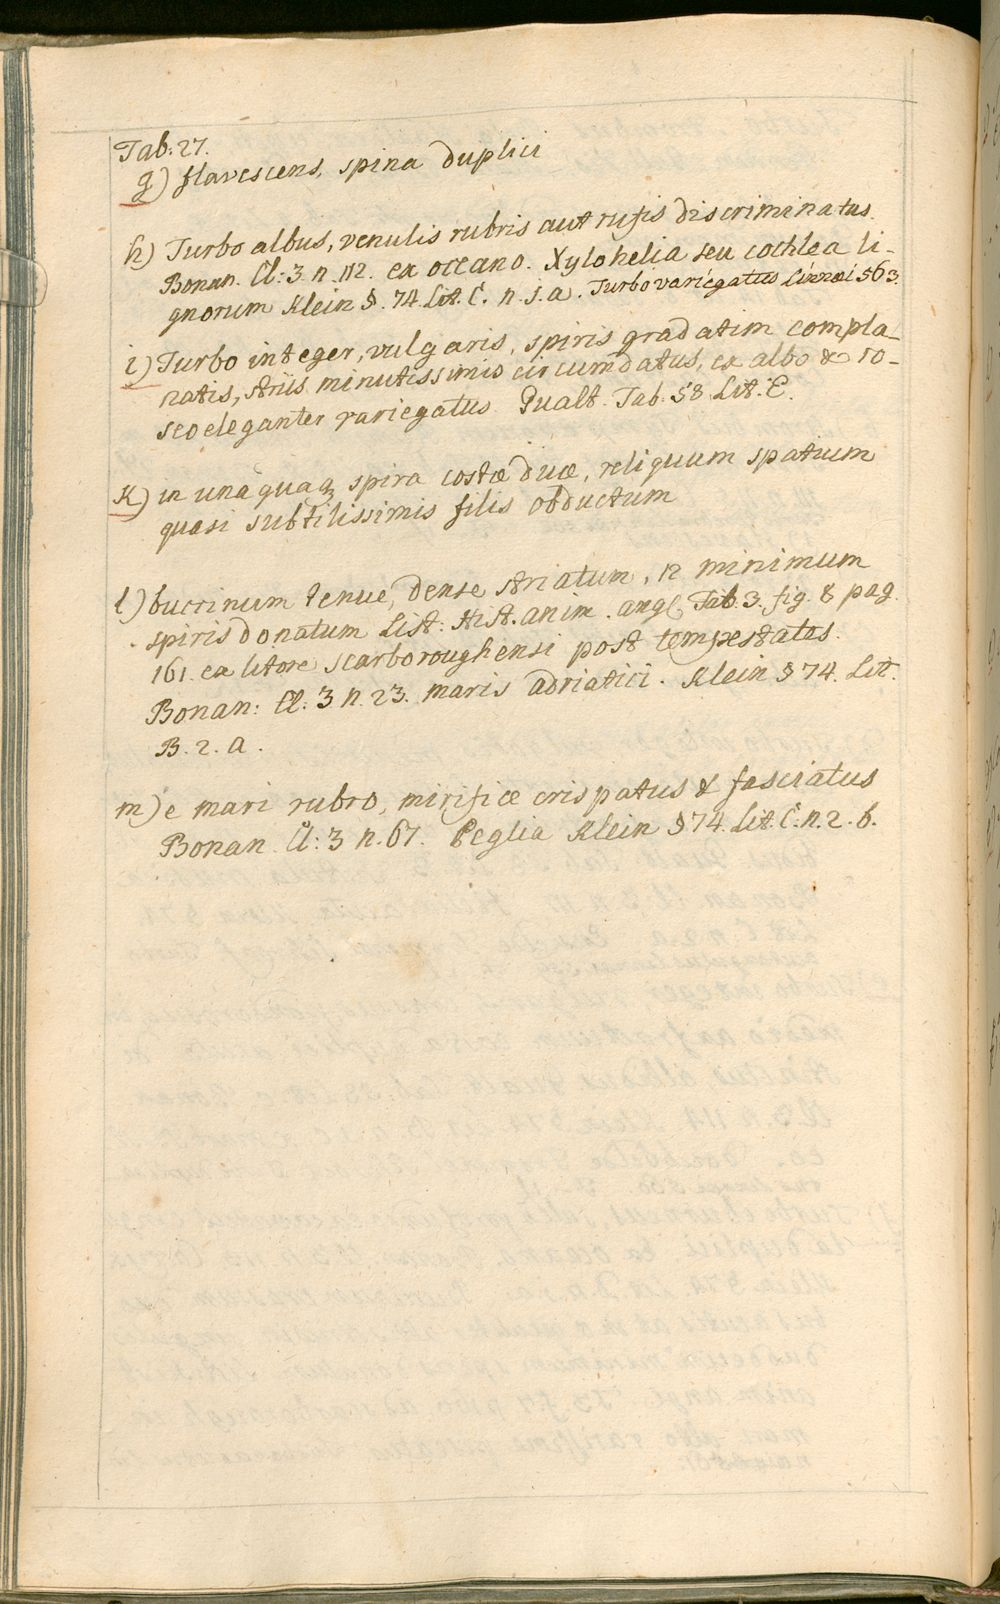 Tab: 27.
g) flavescens, spina duplici
h) Turbo albus, venulis rubris aut rufis discriminatus.
Bonan. Cl: 3 n. 112. ex oceano. Xylohelia seu cochlea li-
gnorum Klein §. 74. Lit. C. n. 5. a. Turbo variegatus Linnæi 563.
i) Turbo integer, vulgaris, spiris gradatim compla-
natis, striis minutissimis circumdatus, ex albo & ro-
seo eleganter variegatus Gualt. Tab. 58 Lit. E.
K) in unaquaq; spira costæ duæ, reliquum spatium
quasi subtilissimis filis obductum
l) buccinum tenue, dense striatum, 12 minimum
spiris donatum List: Hist. anim. angl. Tab. 3. fig. 8 pag.
161. ex litore Scarboroughensi post tempestates.
Bonan: Cl: 3 n. 23. maris adriatici. Klein § 74. Lit.
B. 2. a.
m) e mari rubro, mirifice crispatus & fasciatus
Bonan. Cl: 3 n. 67. Peglia Klein § 74. Lit. C. n. 2. b.